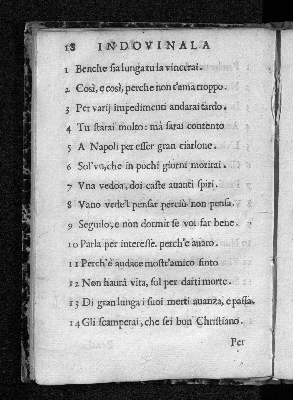 18 INDOVINALA
1 Benche sia lunga tu la vincerai.
2 Così, e così, perche non t'ama troppo.
3 Per varij impedimenti andarai tardo.
4 Tu starai molto: mà sarai contento
5 A Napoli per esser gran ciarlone.
6 Sol'vn, che in pochi giorni morirai.
7 Vna vedoa, doi caste auanti spiri.
8 Vano vedel pensar perciò non pensa.
9 Seguilo, e non dormir se voi far bene.
10 Parla per interesse. perch'è auaro.
11 Perch'è audace mostr'amico finto
12 Non haurà vita, sol per darti morte.
13 Di gran lunga i suoi merti auanza, e passa.
14 Gli scamperai, che sei bon Christiano.
Per